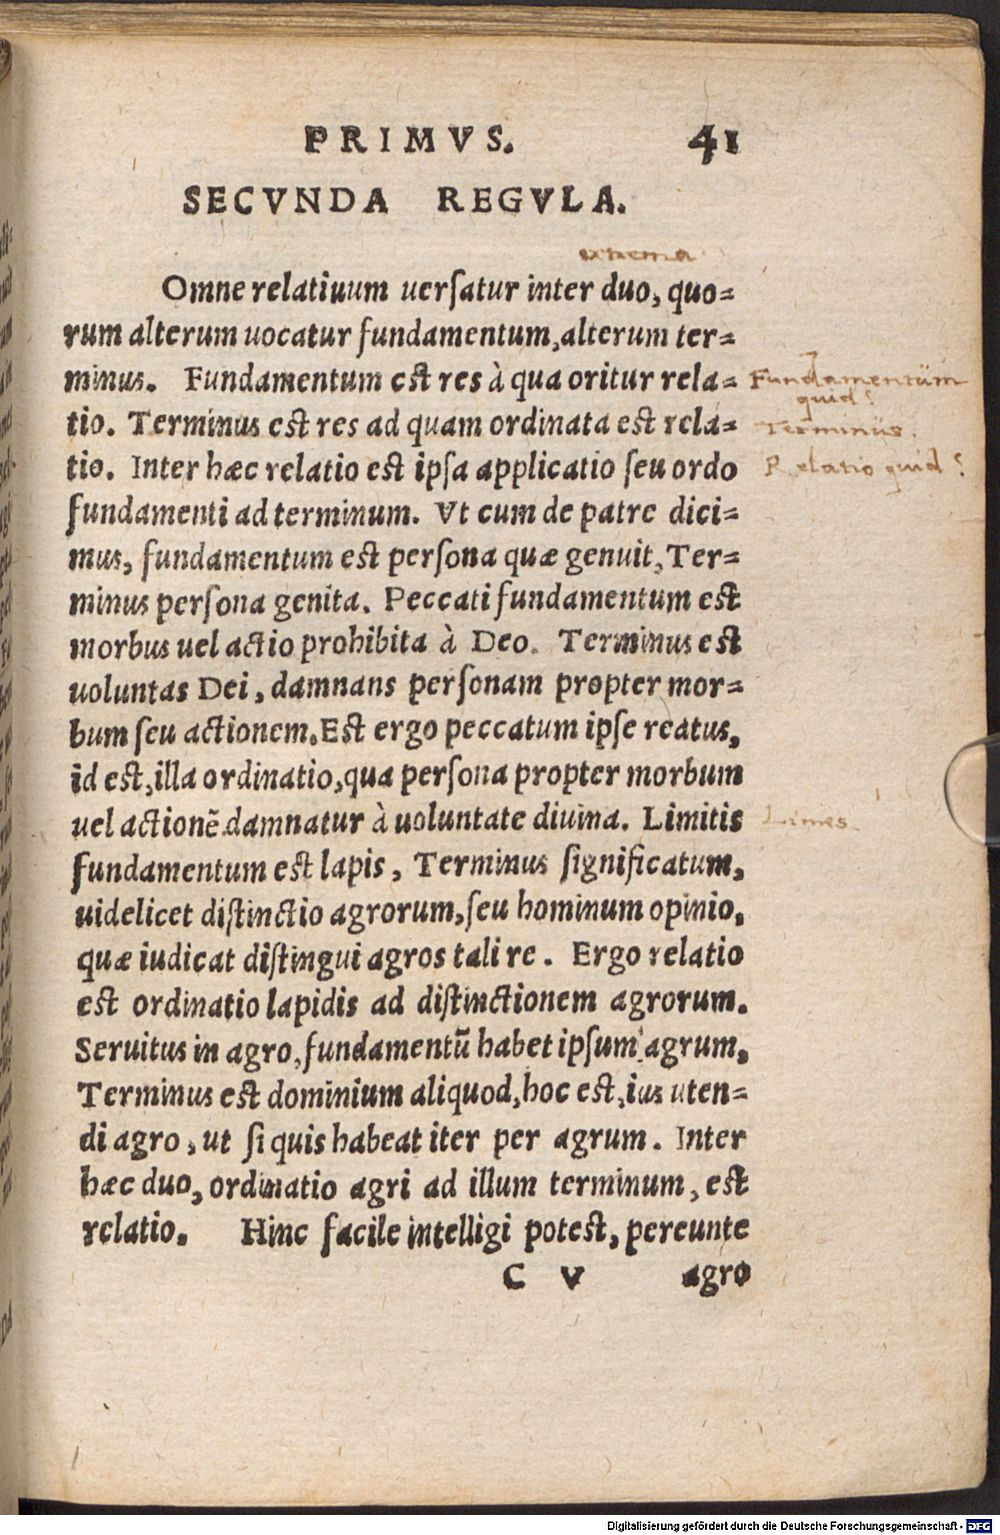 PRIMVS. 41
SECVNDA REGVLA.
extrema
Omne relatiuum uersatur inter duo, quo=
rum alterum uocatur fundamentum, alterum ter=
minus. Fundamentum est res à qua oritur rela=
Fundamentum
quid?
tio. Terminus est res ad quam ordinata est rela=
Terminus.
tio. Inter hæc relatio est ipsa applicatio seu ordo
Relatio quid?
fundamenti ad terminum. Vt cum de patre dici=
mus, fundamentum est persona quæ genuit, Ter=
minus persona genita. Peccati fundamentum est
morbus uel actio prohibita à Deo. Terminus est
uoluntas Dei, damnans personam propter mor=
bum seu actionem. Est ergo peccatum ipse reatus,
id est, illa ordinatio, qua persona propter morbum
uel actionē damnatur à uoluntate diuina. Limitis
Limes.
fundamentum est lapis, Terminus significatum,
uidelicet distinctio agrorum, seu hominum opinio,
quæ iudicat distingui agros tali re. Ergo relatio
est ordinatio lapidis ad distinctionem agrorum.
Seruitus in agro, fundamentū habet ipsum agrum,
Terminus est dominium aliquod, hoc est, ius uten=
di agro, ut si quis habeat iter per agrum. Inter
hæc duo, ordinatio agri ad illum terminum, est
relatio. Hinc facile intelligi potest, pereunte
C V agro
Digitalisierung gefördert durch die Deutsche Forschungsgemeinschaft - DFG